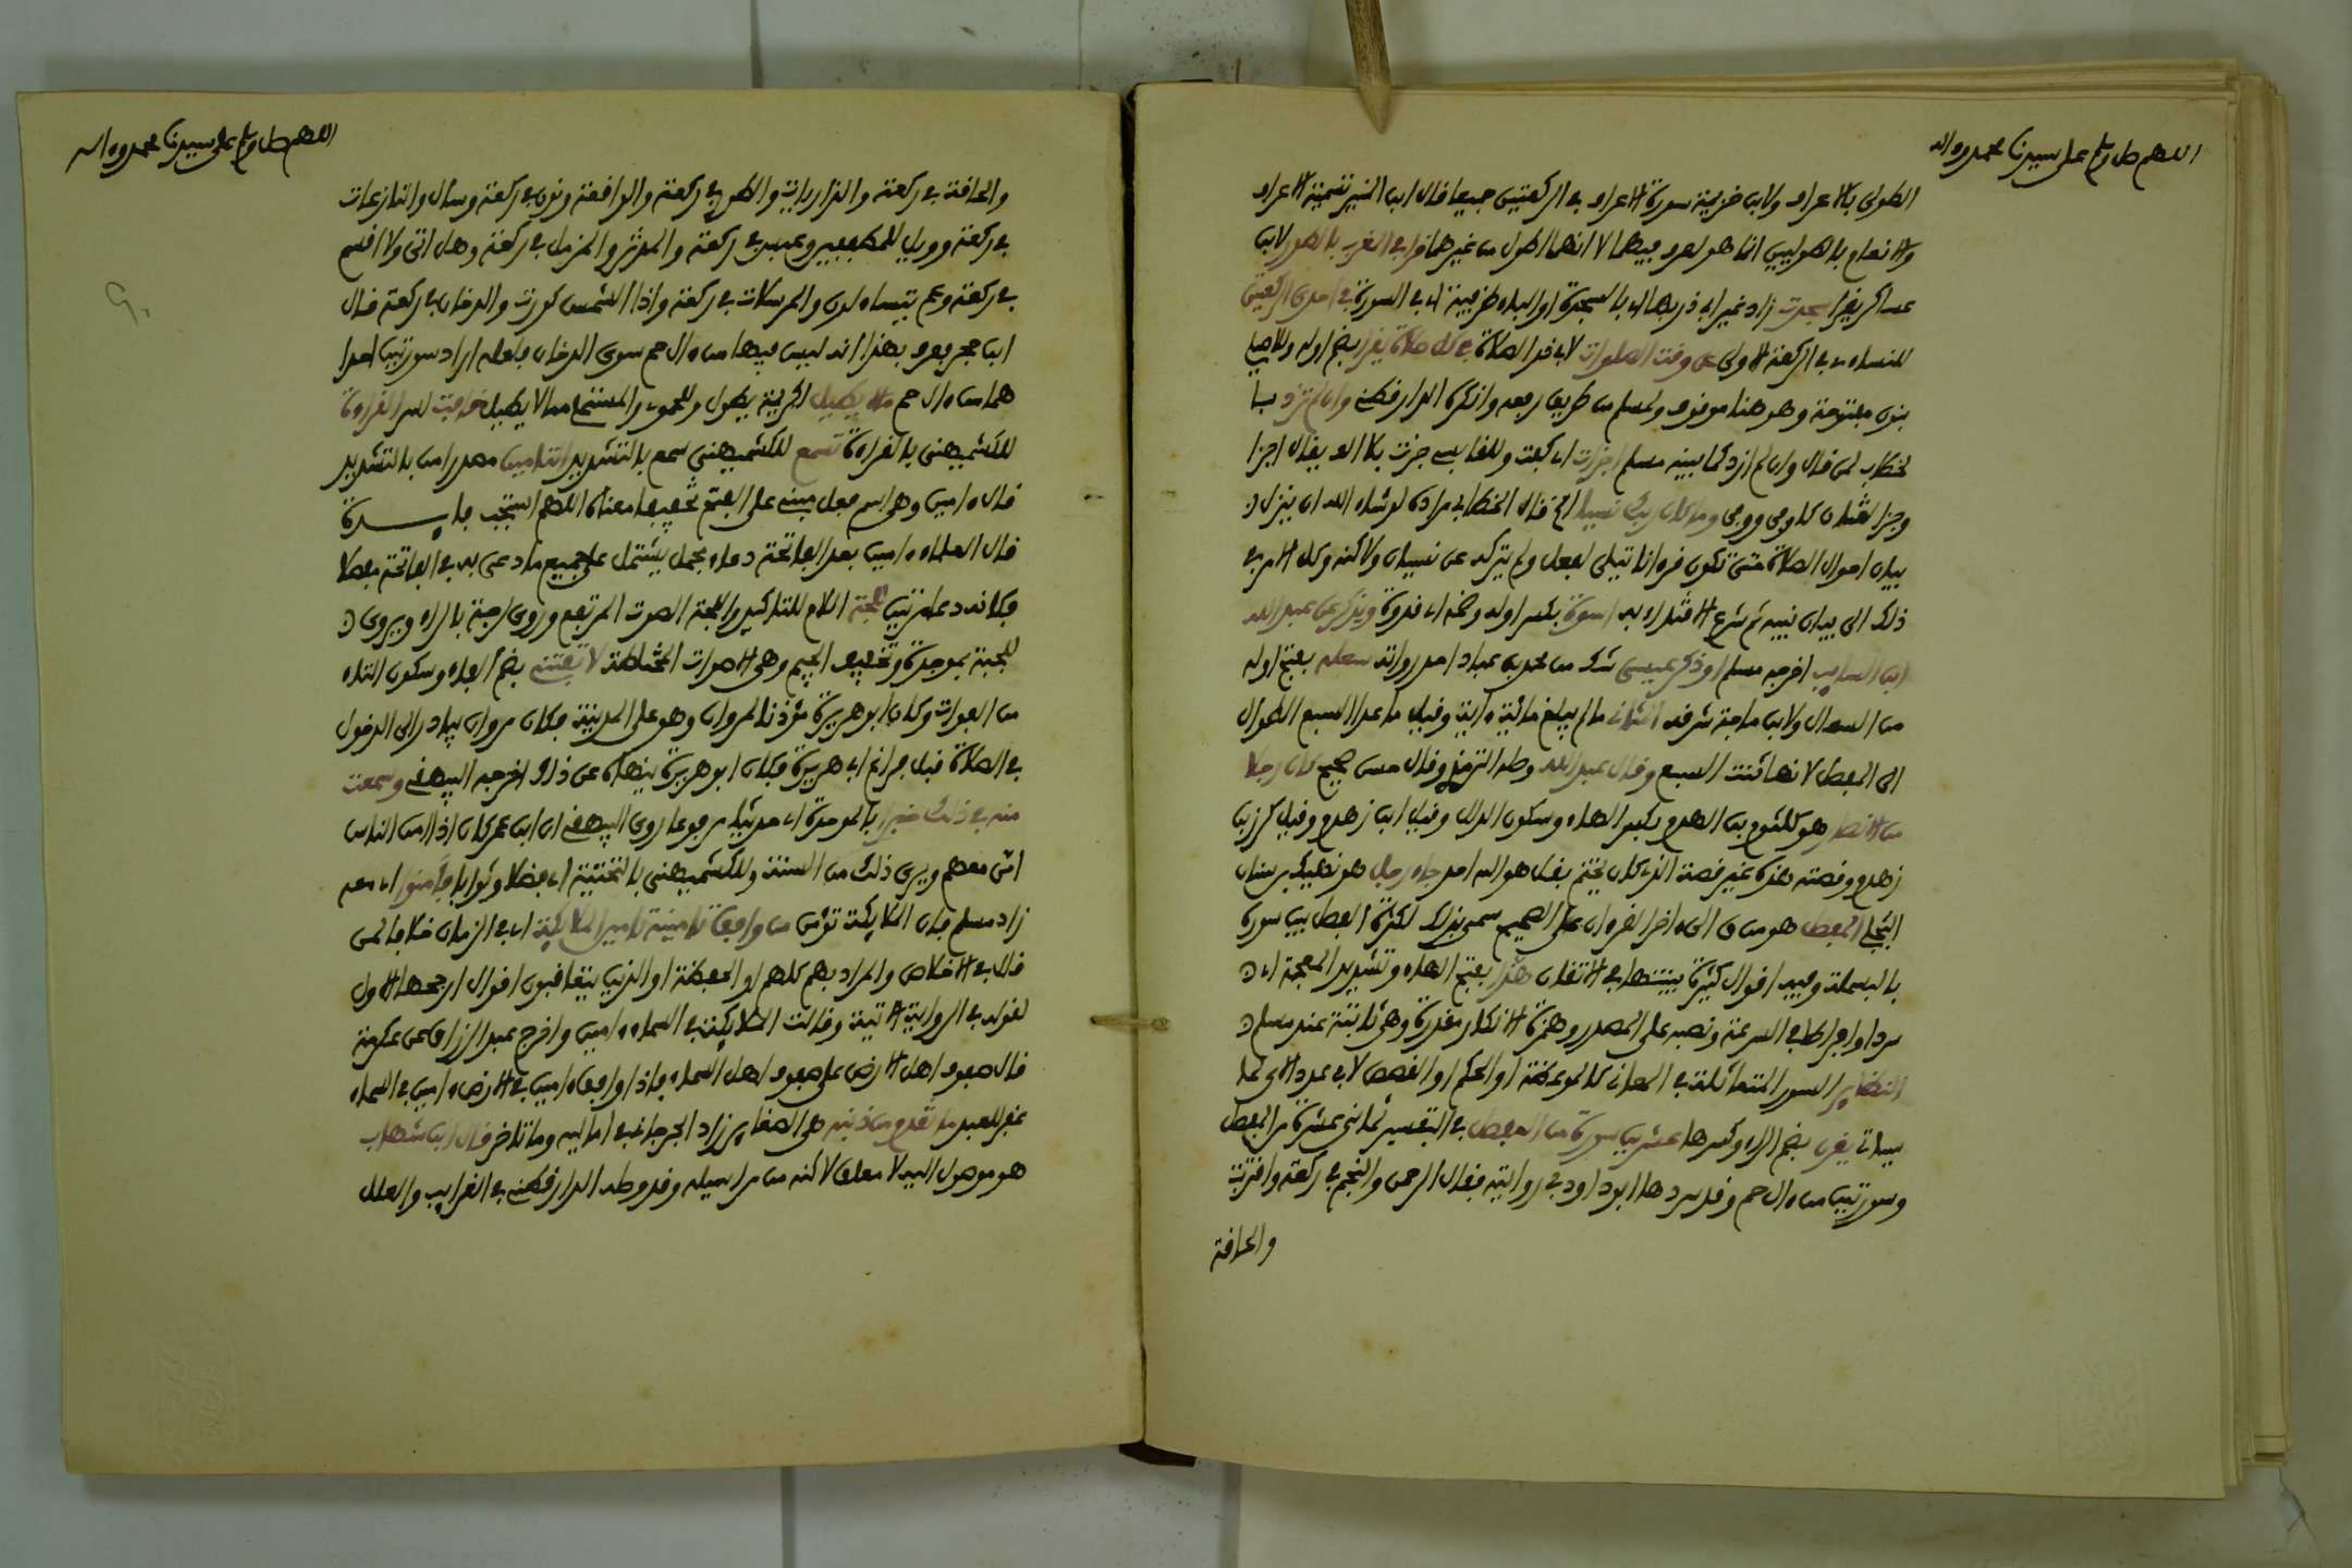 اللهم صل وسلم على سيدنا محمد وءاله
الطولى بالاعراف ولابن خزيمة سورة الاعراف في الركعتين جميعا قال ابن المنير تسمية الاعراف
والانعام بالطوليين انما هو لعرف فيهما لا انهما اطول من غيرهما قرا في المغرب بالطور لابن
عساكر يقرا سجدت زاد غير ابي ذر بها اي بالسجدة او الباء ظرفية اي في السورة في احدى الركعتين
للنساءي في الركعة الاولى عن وقت الصلوات لابي ذر الصلاة في كل صلاة يقرا بضم اوله وللاصيلي
بنون مفتوحة وهو هنا موقوف ولمسلم من طريق رفعه وانكره الدارقطني وان لم تزد بتا
لخطاب لمن قال وان لم ازد كما بينه مسلم اجزات اي كفت وللقابسي جزت بلا الف يقال اجزا
وجزا لغتان كاوفى ووفى وما كان ربك نسيا الخ قال الخطابي مراده لو شاء الله ان ينزل
بيان احوال الصلاة حتى تكون قرءانا يتلى لفعل ولم يتركه عن نسيان ولاكنه وكل الامر في
ذلك الى بيان نبيه ثم شرع الاقتداء به اسوة بكسر اوله وضمه اي قدوة ويذكر عن عبد الله
ابن السايب اخرجه مسلم او ذكر عيسى شك من محمد بن عباد احد رواته سعلة بفتح اوله
من السعال ولابن ماجة شرقة المثاني ما لم يبلغ مائة ءاية وقيل ما عدا السبع الطوال
الى المفصل لانها ثنت السبع وقال عبيد الله وصله الترمذي وقال حسن صحيح كان رجل
من الانصار هو كلثوم بن الهدم بكسر الهاء وسكون الدال وقيل ابن زهدم وقيل كرز بن
زهدم وقصته هذه غير قصة الذي كان يختم بقل هو الله احد جاء رجل هو نهيك بن سنان
البجلي المفصل هو من ق الى ءاخر القرءان على الصحيح سمي بذلك لكثرة الفصل بين سوره
بالبسملة وفيه اقوال كثيرة بينتها في الاتقان هذا بفتح الهاء وتشديد المعجمة اي
سردا وافراطا في السرعة ونصبه على المصدر وهمزة الانكار مقدرة وهي ثابتة عند مسلم
النظاير السور المتماثلة في المعاني كالموعظة او الحكم او القصص لا في عدد الاي لما
سياتي يقرن بضم الراء وكسرها عشرين سورة من المفصل في التفسير ثماني عشرة من المفصل
وسورتين من ءال حم وقد سردها ابو داود في روايته فقال الرحمن والنجم في ركعة واقتربت
والحاقة
اللهم صل وسلم على سيدنا محمد وءاله
والحاقة في ركعة والذاريات والطور في ركعة والواقعة ونون في ركعة وسال والنازعات
في ركعة وويل للمطففين وعبس في ركعة والمدثر والمزمل في ركعة وهل اتى ولا اقسم
في ركعة وعم يتساءلون والمرسلات في ركعة واذا الشمس كورت والدخان في ركعة قال
ابن حجر يعرف بهذا انه ليس فيها من ءال حم سوى الدخان فلعله اراد سورتين احدا
هما من ءال حم ما لا يطيل لكريمة يطول وللحموي والمستملي مما لا يطيل خافت اسر القراءة
للكشميهني بالقراءة تسمع للكشميهني سمع بالتشديد التامين مصدر امن بالتشديد
قال ءامين وهي اسم فعل مبني على الفتح تخفيفا معناه اللهم استجب فايـــدة
قال العلماء ءامين بعد الفاتحة دعاء مجمل يشتمل على جميع ما دعي به في الفاتحة مفصلا
فكانه دعا مرتين للجة اللام للتاكيد واللجة الصوت المرتفع وروي لرجة بالراء ويروى
للجبة بموحدة وتخفيف الجيم وهي الاصوات المختلطة لا تفتني بضم الفاء وسكون التاء
من الفوات وكان ابو هريرة مؤذنا لمروان وهو على المدينة فكان مروان يبادر الى الدخول
في الصلاة قبل فراغ ابي هريرة فكان ابو هريرة ينهاه عن ذلك اخرجه البيهقي وسمعت
منه في ذلك خبرا بالموحدة اي حديثا مرفوعا روى البيهقي ان ابن عمر كان اذا امن الناس
امن معهم ويرى ذلك من السنة وللكشميهني بالتحتية اي فضلا وثوابا فامنوا اي معه
زاد مسلم فان الملايكة تؤمن من وافق تامينه تامين الملايكة اي في الزمان خلافا لمن
قال في الاخلاص والمراد بهم كلهم او الحفظة او الذين يتعاقبون اقوال ارجحها الاول
لقوله في الرواية الاتية وقالت الملايكة في السماء ءامين واخرج عبد الرزاق عن عكرمة
قال صفوف اهل الارض على صفوف اهل السماء فاذا وافق ءامين في الارض ءامين في السماء
غفر للعبد ما تقدم من ذنبه هي الصغاير زاد الجرجاني في اماليه وما تاخر قال ابن شهاب
هو موصول اليه لا معلق لاكنه من مراسيله وقد وصله الدارقطني في الغرايب والعلل